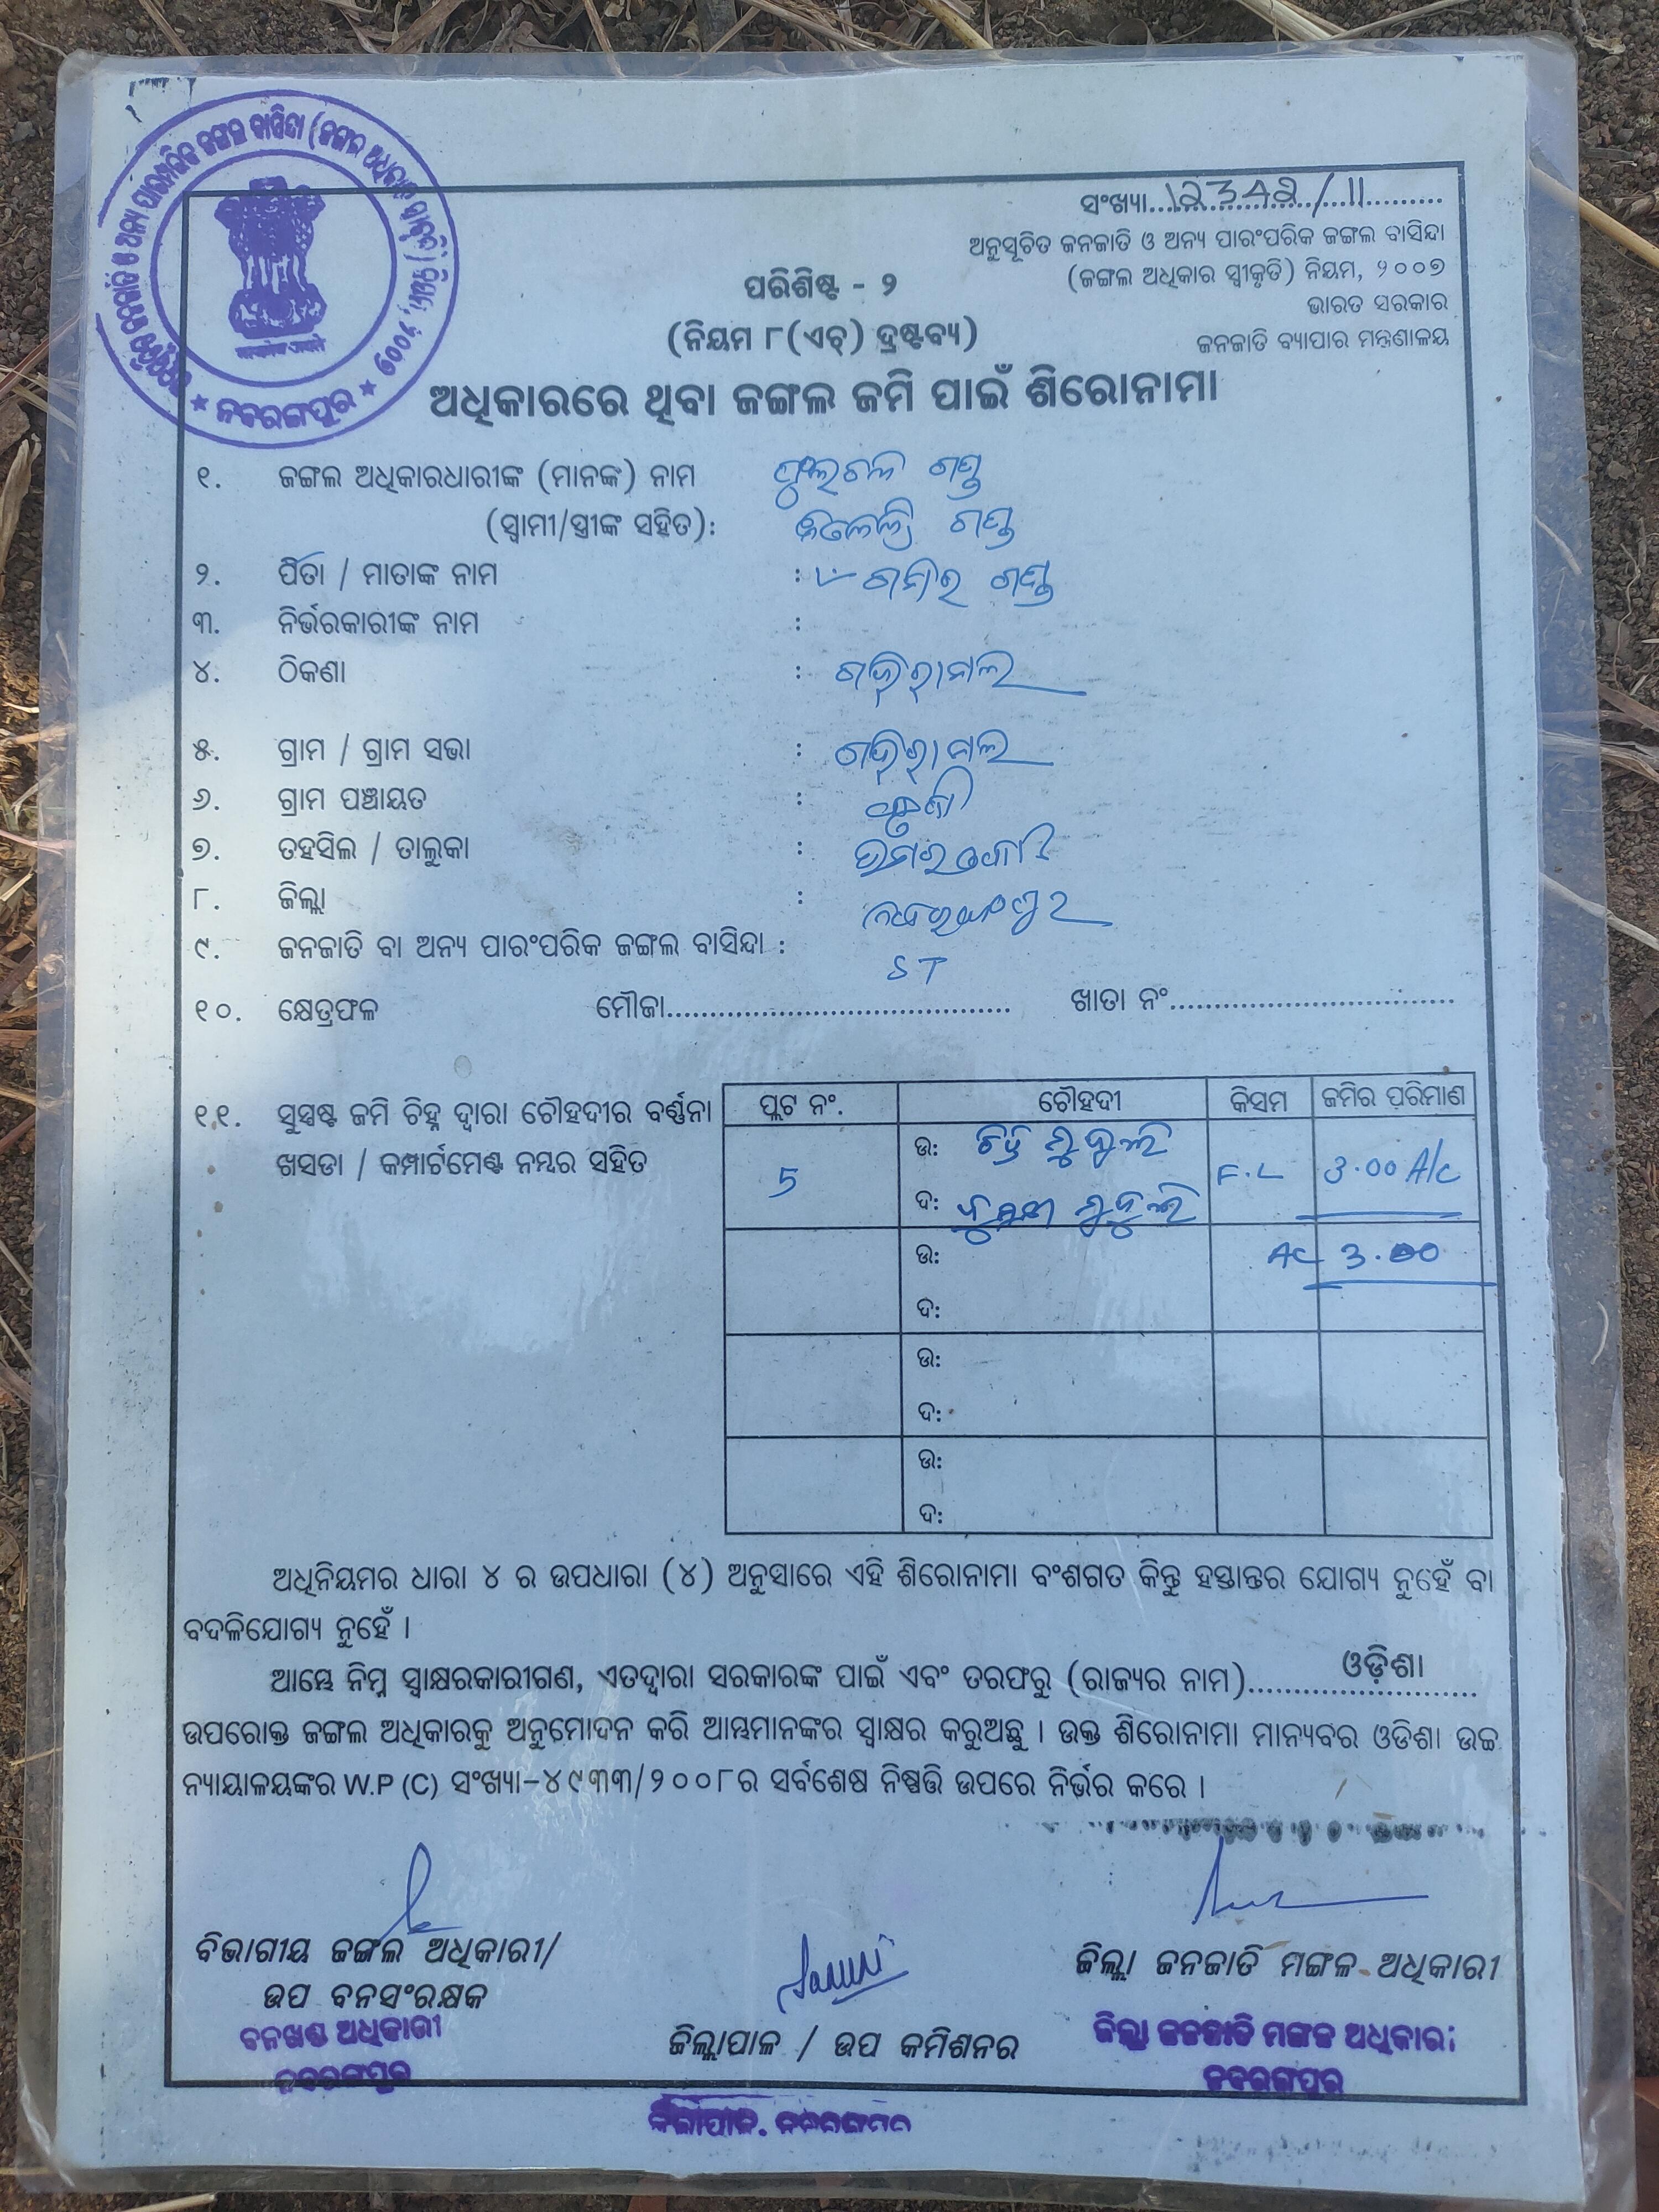 ସଂଖ୍ୟା
ଅନୁସୂଚିତ ଜନଜାତି ଓ ଅନ୍ୟ ପାରଂପରିକ ଜଙ୍ଗଲ ବାସିନ୍ଦା
(ଜଙ୍ଗଲ ଅଧିକାର ସ୍ୱୀକୃତି) ନିୟମ, ୨୦୦୭
ଭାରତ ସରକାର
ଜନଜାତି ବ୍ୟାପାର ମନ୍ତ୍ରଣାଳୟ
ପରିଶିଷ୍ଟ - ୨
(ନିୟମ ୮(ଏଚ୍) ଦ୍ରଷ୍ଟବ୍ୟ)
ଅଧିକାରରେ ଥିବା ଜଙ୍ଗଲ ଜମି ପାଇଁ ଶିରୋନାମା
ନବରଙ୍ଗପୁର
୧. ଜଙ୍ଗଲ ଅଧିକାରଧାରୀଙ୍କ (ମାନଙ୍କ) ନାମ
(ସ୍ୱାମୀ/ସ୍ତ୍ରୀଙ୍କ ସହିତ):
୨. ପିତା / ମାତାଙ୍କ ନାମ :
୩. ନିର୍ଭରକାରୀଙ୍କ ନାମ :
୪. ଠିକଣା :
୫. ଗ୍ରାମ / ଗ୍ରାମ ସଭା :
୬. ଗ୍ରାମ ପଞ୍ଚାୟତ :
୭. ତହସିଲ / ତାଲୁକା : ଉମରକୋଟ
୮. ଜିଲ୍ଲା : ନବରଙ୍ଗପୁର
୯. ଜନଜାତି ବା ଅନ୍ୟ ପାରଂପରିକ ଜଙ୍ଗଲ ବାସିନ୍ଦା :
ST
୧୦. କ୍ଷେତ୍ରଫଳ ମୌଜା........................ ଖାତା ନଂ........................
୧୧. ସୁସ୍ପଷ୍ଟ ଜମି ଚିହ୍ନ ଦ୍ୱାରା ଚୌହଦୀର ବର୍ଣ୍ଣନା
ଖସଡା / କମ୍ପାର୍ଟମେଣ୍ଟ ନମ୍ବର ସହିତ
ପ୍ଲଟ ନଂ. ଚୌହଦୀ କିସମ ଜମିର ପରିମାଣ
5 ଉ: F.L 3.00 A/c
ଦ:
ଉ: AC 3.00
ଦ:
ଉ:
ଦ:
ଉ:
ଦ:
ଅଧିନିୟମର ଧାରା ୪ ର ଉପଧାରା (୪) ଅନୁସାରେ ଏହି ଶିରୋନାମା ବଂଶଗତ କିନ୍ତୁ ହସ୍ତାନ୍ତର ଯୋଗ୍ୟ ନୁହେଁ ବା
ବଦଳିଯୋଗ୍ୟ ନୁହେଁ ।
ଆମ୍ଭେ ନିମ୍ନ ସ୍ୱାକ୍ଷରକାରୀଗଣ, ଏତଦ୍ୱାରା ସରକାରଙ୍କ ପାଇଁ ଏବଂ ତରଫରୁ (ରାଜ୍ୟର ନାମ) ଓଡ଼ିଶା
ଉପରୋକ୍ତ ଜଙ୍ଗଲ ଅଧିକାରକୁ ଅନୁମୋଦନ କରି ଆମ୍ଭମାନଙ୍କର ସ୍ୱାକ୍ଷର କରୁଅଛୁ । ଉକ୍ତ ଶିରୋନାମା ମାନ୍ୟବର ଓଡିଶା ଉଚ୍ଚ
ନ୍ୟାୟାଳୟଙ୍କର W.P (C) ସଂଖ୍ୟା-୪୯୩୩/୨୦୦୮ର ସର୍ବଶେଷ ନିଷ୍ପତ୍ତି ଉପରେ ନିର୍ଭର କରେ ।
ବିଭାଗୀୟ ଜଙ୍ଗଲ ଅଧିକାରୀ/
ଉପ ବନସଂରକ୍ଷକ
ବନଖଣ୍ଡ ଅଧିକାରୀ
ନବରଙ୍ଗପୁର
ଜିଲ୍ଲାପାଳ / ଉପ କମିଶନର
ଜିଲ୍ଲାପାଳ, ନବରଙ୍ଗପୁର
ଜିଲ୍ଲା ଜନଜାତି ମଙ୍ଗଳ ଅଧିକାରୀ
ଜିଲ୍ଲା ଜନଜାତି ମଙ୍ଗଳ ଅଧିକାରୀ
ନବରଙ୍ଗପୁର